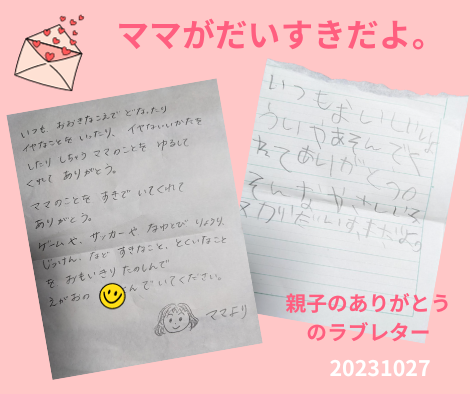 ママがだいすきだよ。
いつも おおきなこえで どなったり
イヤなことを いったり、イヤないいかたを
したり しちゃう ママのことを ゆるして
くれて ありがとう。
ママのことを すきで いてくれて
ありがとう。
ゲームや、サッカーや なわとび りょうり、
じっけん、など すきなこと、とくいなこと
を おもいきり たのしんで
えがおの んで いてください。
ママより
いつもおいしいりょ
うりやあそんでく
れてありがとう。
そんなやさしいマ
マがだいすきだよ。
親子のありがとう
のラブレター
20231027